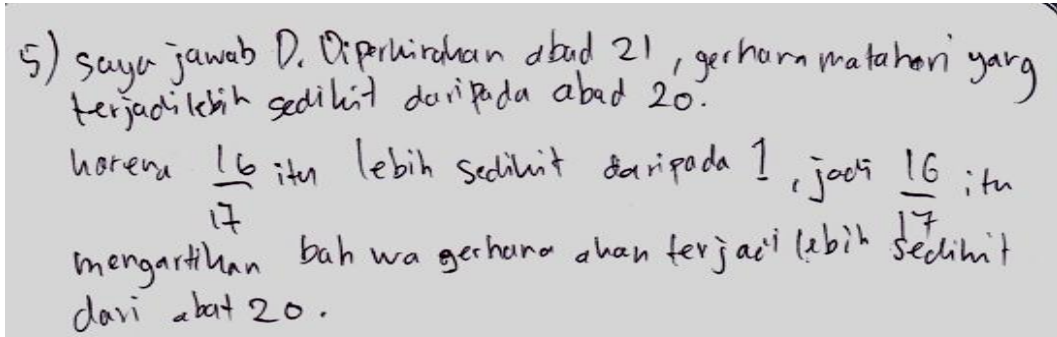 5) saya jawab D. Diperkirakan abad 21, gerhana matahari yang
terjadi lebih sedikit daripada abad 20.
karena 16/17 itu lebih sedikit daripada 1, jadi 16/17 itu
mengartikan bahwa gerhana akan terjadi lebih sedikit
dari abat 20.